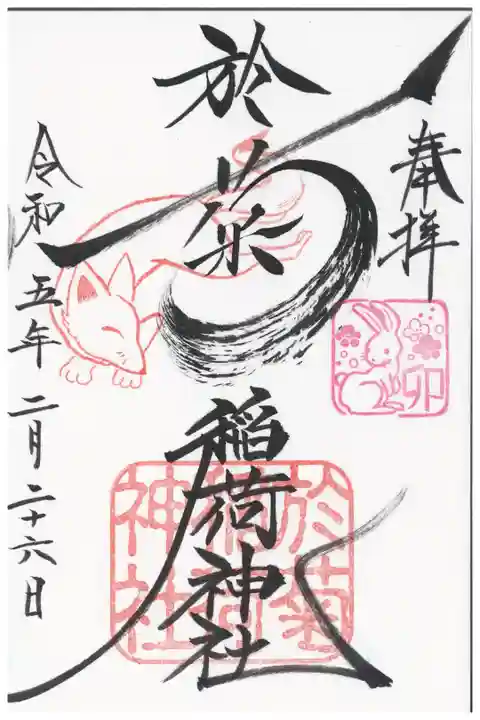 奉拝
卯
於菊
稲荷神社
於菊
稲荷
神社
令和五年二月二十六日